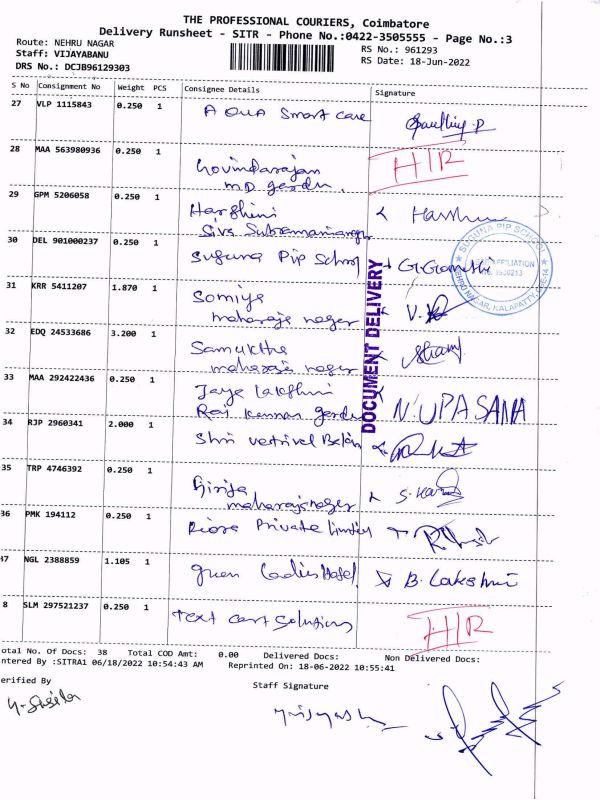 THE PROFESSIONAL COURIERS, Coimbatore
Delivery Runsheet - SITR - Phone No.:0422-3505555 - Page No.:3
Route: NEHRU NAGAR
RS No.: 961293
Staff: VIJAYABANU
RS Date: 18-Jun-2022
DRS No.: DCJB96129303
S No Consignment No Weight PCS Consignee Details Signature
27 VLP 1115843 0.250 1 Smart care
28 MAA 563980936 0.250 1 Govindarajan HIR
M.D.
29 GPM 5206058 0.250 1 Harshini
Siva Subramaniam
30 DEL 901000237 0.250 1 Suguna Pip School
SUGUNA PIP SCHOOL
AFFILIATION
NEHRU NAGAR, KALAPATTI, CBE-14
DOCUMENT DELIVERY
31 KRR 5411207 1.870 1 Somiya
maharaja nager
32 EDQ 24533686 3.200 1
maharaja nager
33 MAA 292422436 0.250 1 Jaya Lakshmi
N. UPASANA
34 RJP 2960341 2.000 1 Shri vetrivel
35 TRP 4746392 0.250 1 Girija
maharaja nager
36 PMK 194112 0.250 1 Private limited
37 NGL 2388859 1.105 1 green Ladies Hostel B. Lakshmi
8 SLM 297521237 0.250 1 Text cart solutions HIR
otal No. Of Docs: 38 Total COD Amt: 0.00 Delivered Docs: Non Delivered Docs:
ntered By :SITRA1 06/18/2022 10:54:43 AM Reprinted On: 18-06-2022 10:55:41
erified By
Staff Signature